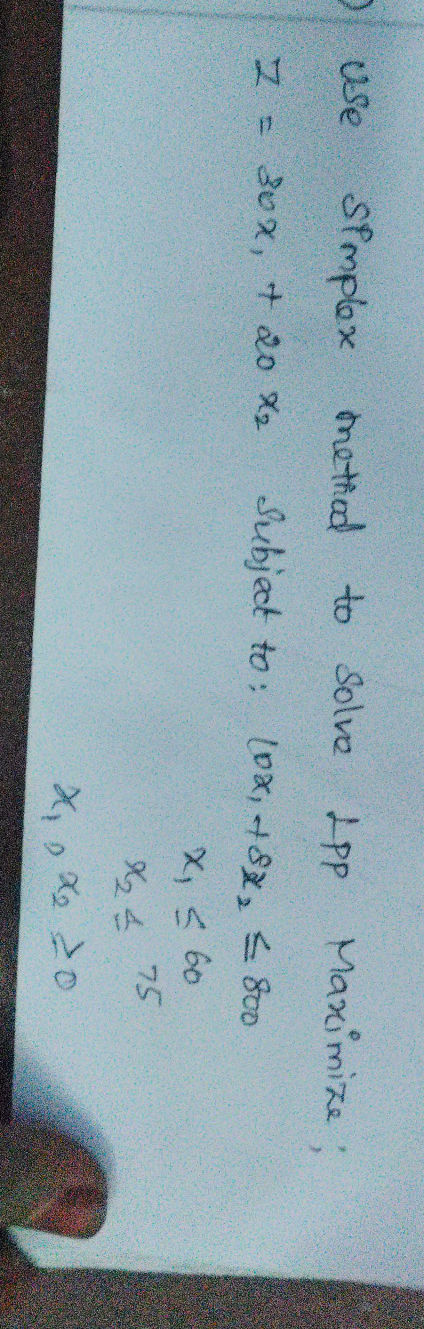 ) Use Simplex method to solve LPP Maximize;
Z = 30x₁ + 20x₂ Subject to: 10x₁+8x₂ ≤ 800
x₁ ≤ 60
x₂ ≤ 75
x₁, x₂ ≥ 0